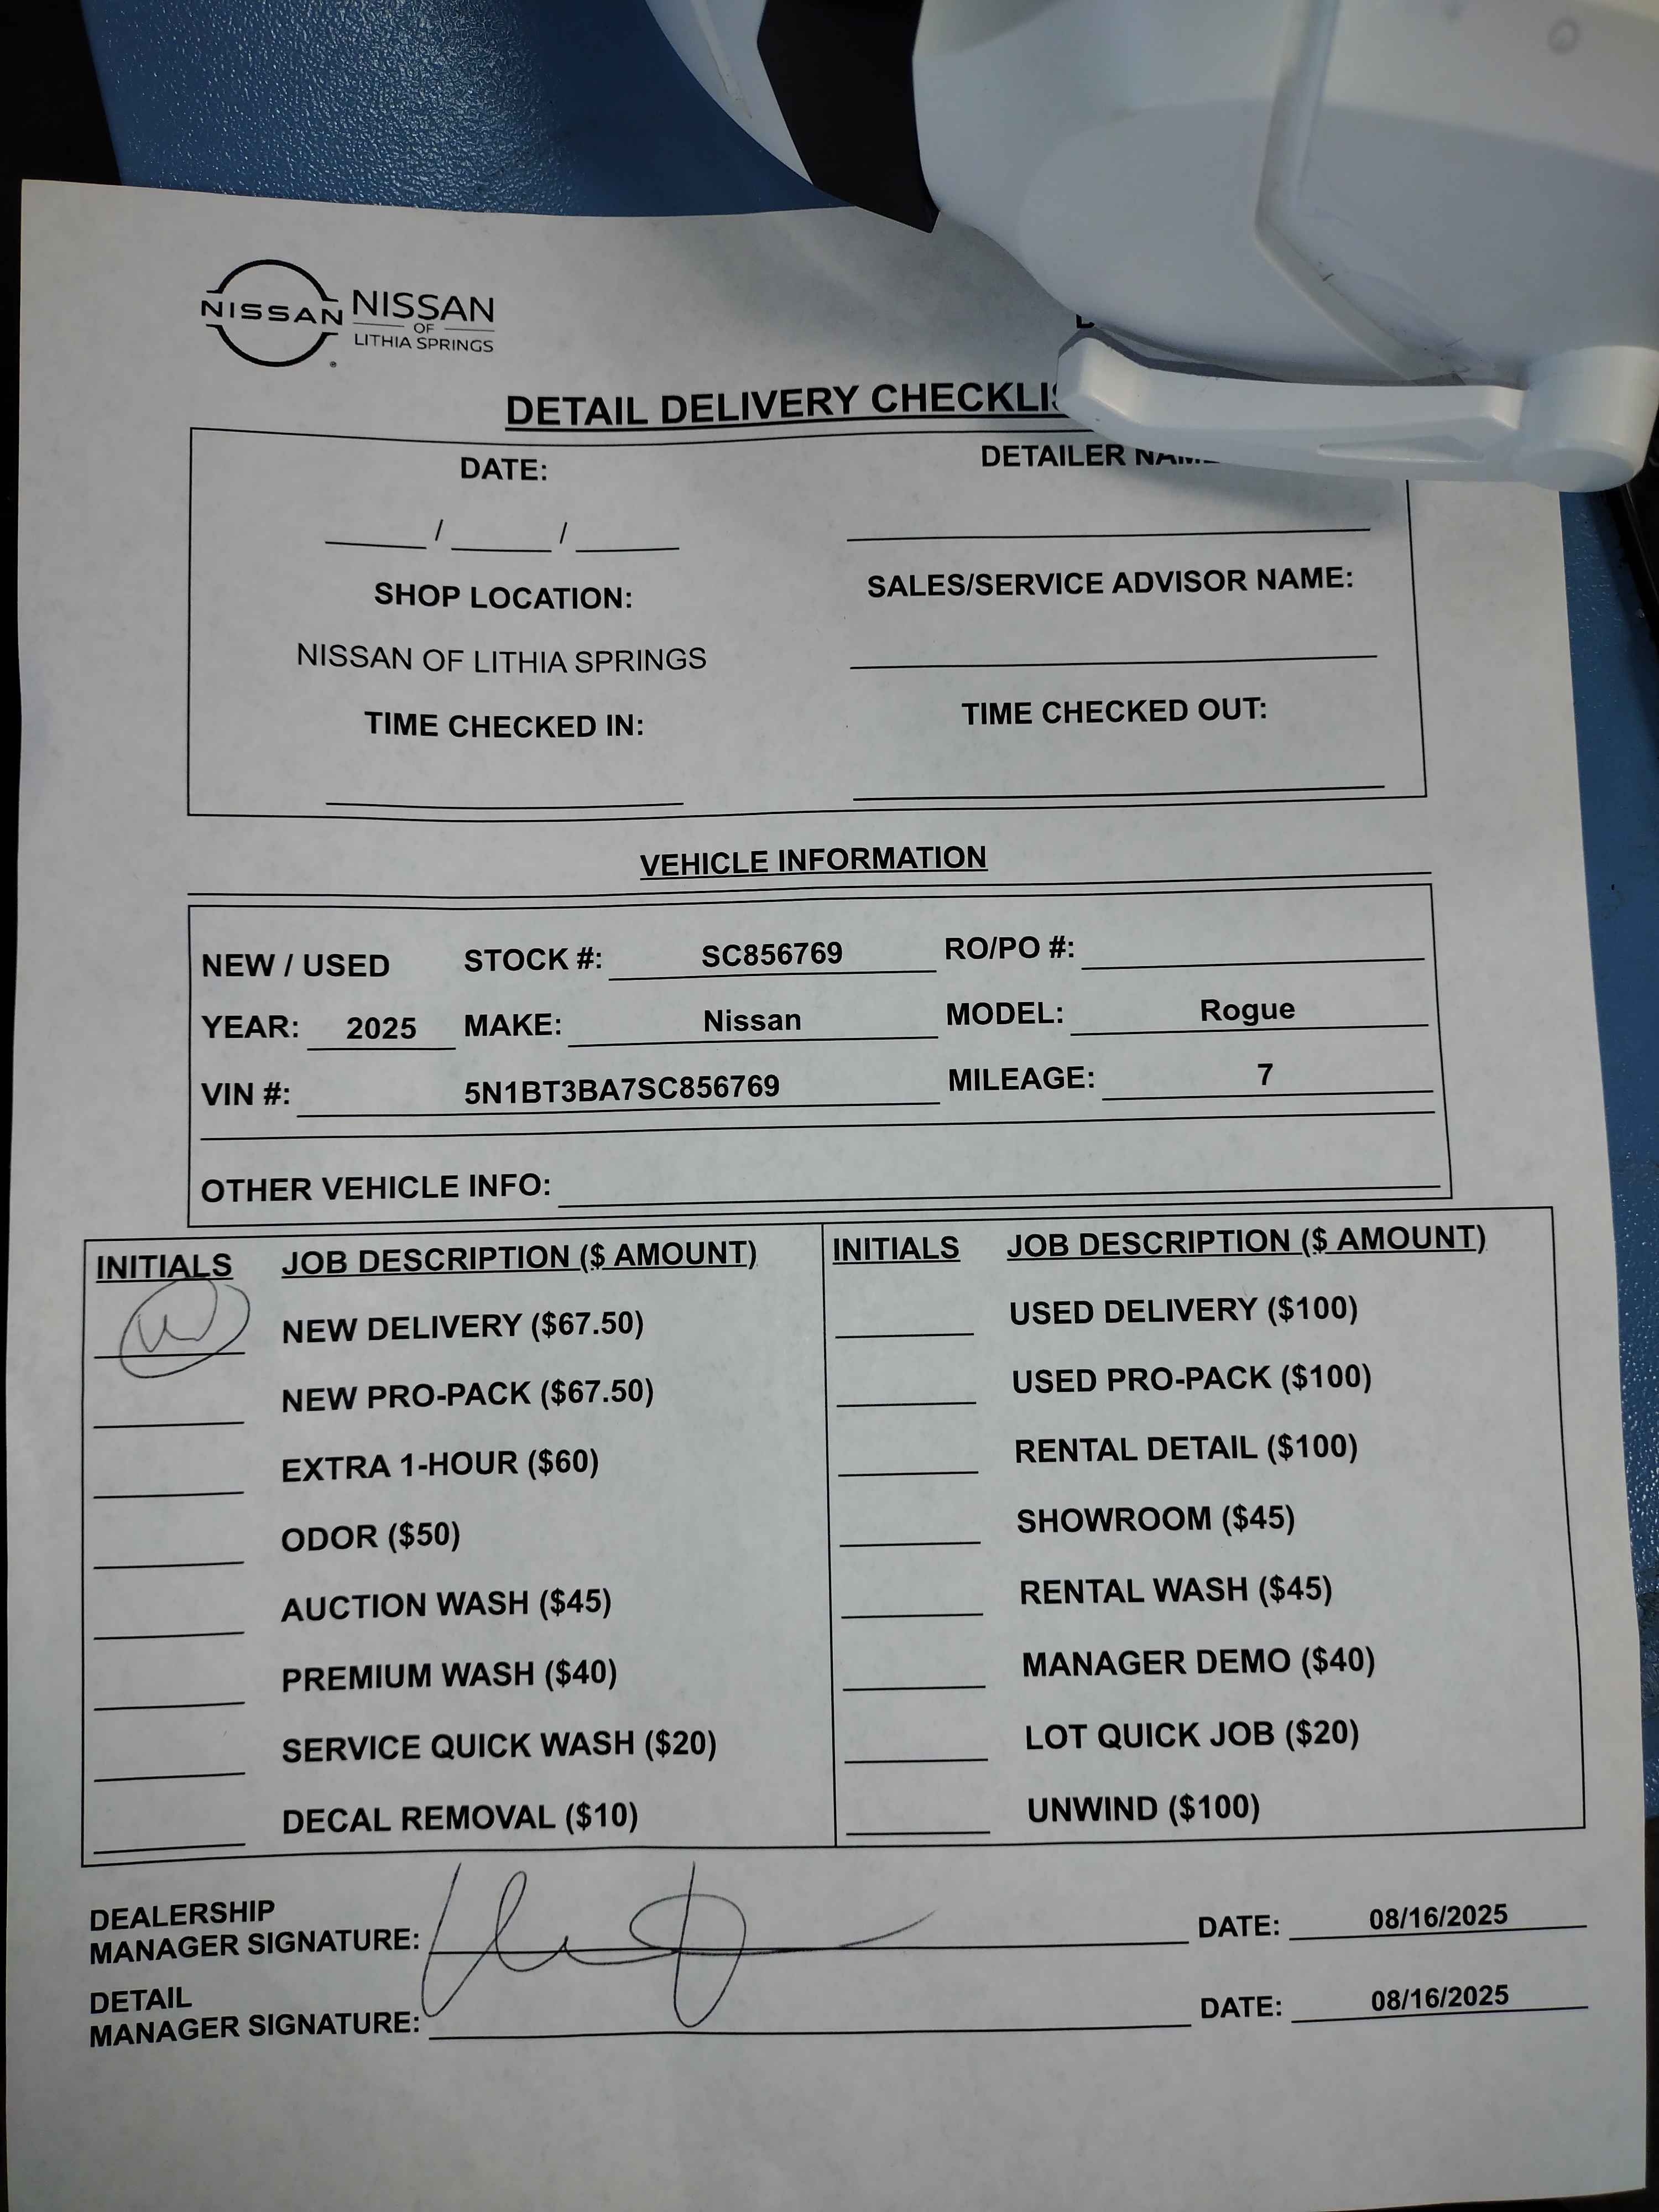 NISSAN NISSAN
OF
LITHIA SPRINGS
DETAIL DELIVERY
DATE: DETAILER
/ /
SHOP LOCATION: SALES/SERVICE ADVISOR NAME:
NISSAN OF LITHIA SPRINGS
TIME CHECKED IN: TIME CHECKED OUT:
VEHICLE INFORMATION
NEW / USED STOCK #: SC856769 RO/PO #:
YEAR: 2025 MAKE: Nissan MODEL: Rogue
VIN #: 5N1BT3BA7SC856769 MILEAGE: 7
OTHER VEHICLE INFO:
INITIALS JOB DESCRIPTION ($ AMOUNT) INITIALS JOB DESCRIPTION ($ AMOUNT)
NEW DELIVERY ($67.50) USED DELIVERY ($100)
NEW PRO-PACK ($67.50) USED PRO-PACK ($100)
EXTRA 1-HOUR ($60) RENTAL DETAIL ($100)
ODOR ($50) SHOWROOM ($45)
AUCTION WASH ($45) RENTAL WASH ($45)
PREMIUM WASH ($40) MANAGER DEMO ($40)
SERVICE QUICK WASH ($20) LOT QUICK JOB ($20)
DECAL REMOVAL ($10) UNWIND ($100)
DEALERSHIP
MANAGER SIGNATURE: DATE: 08/16/2025
DETAIL
MANAGER SIGNATURE: DATE: 08/16/2025